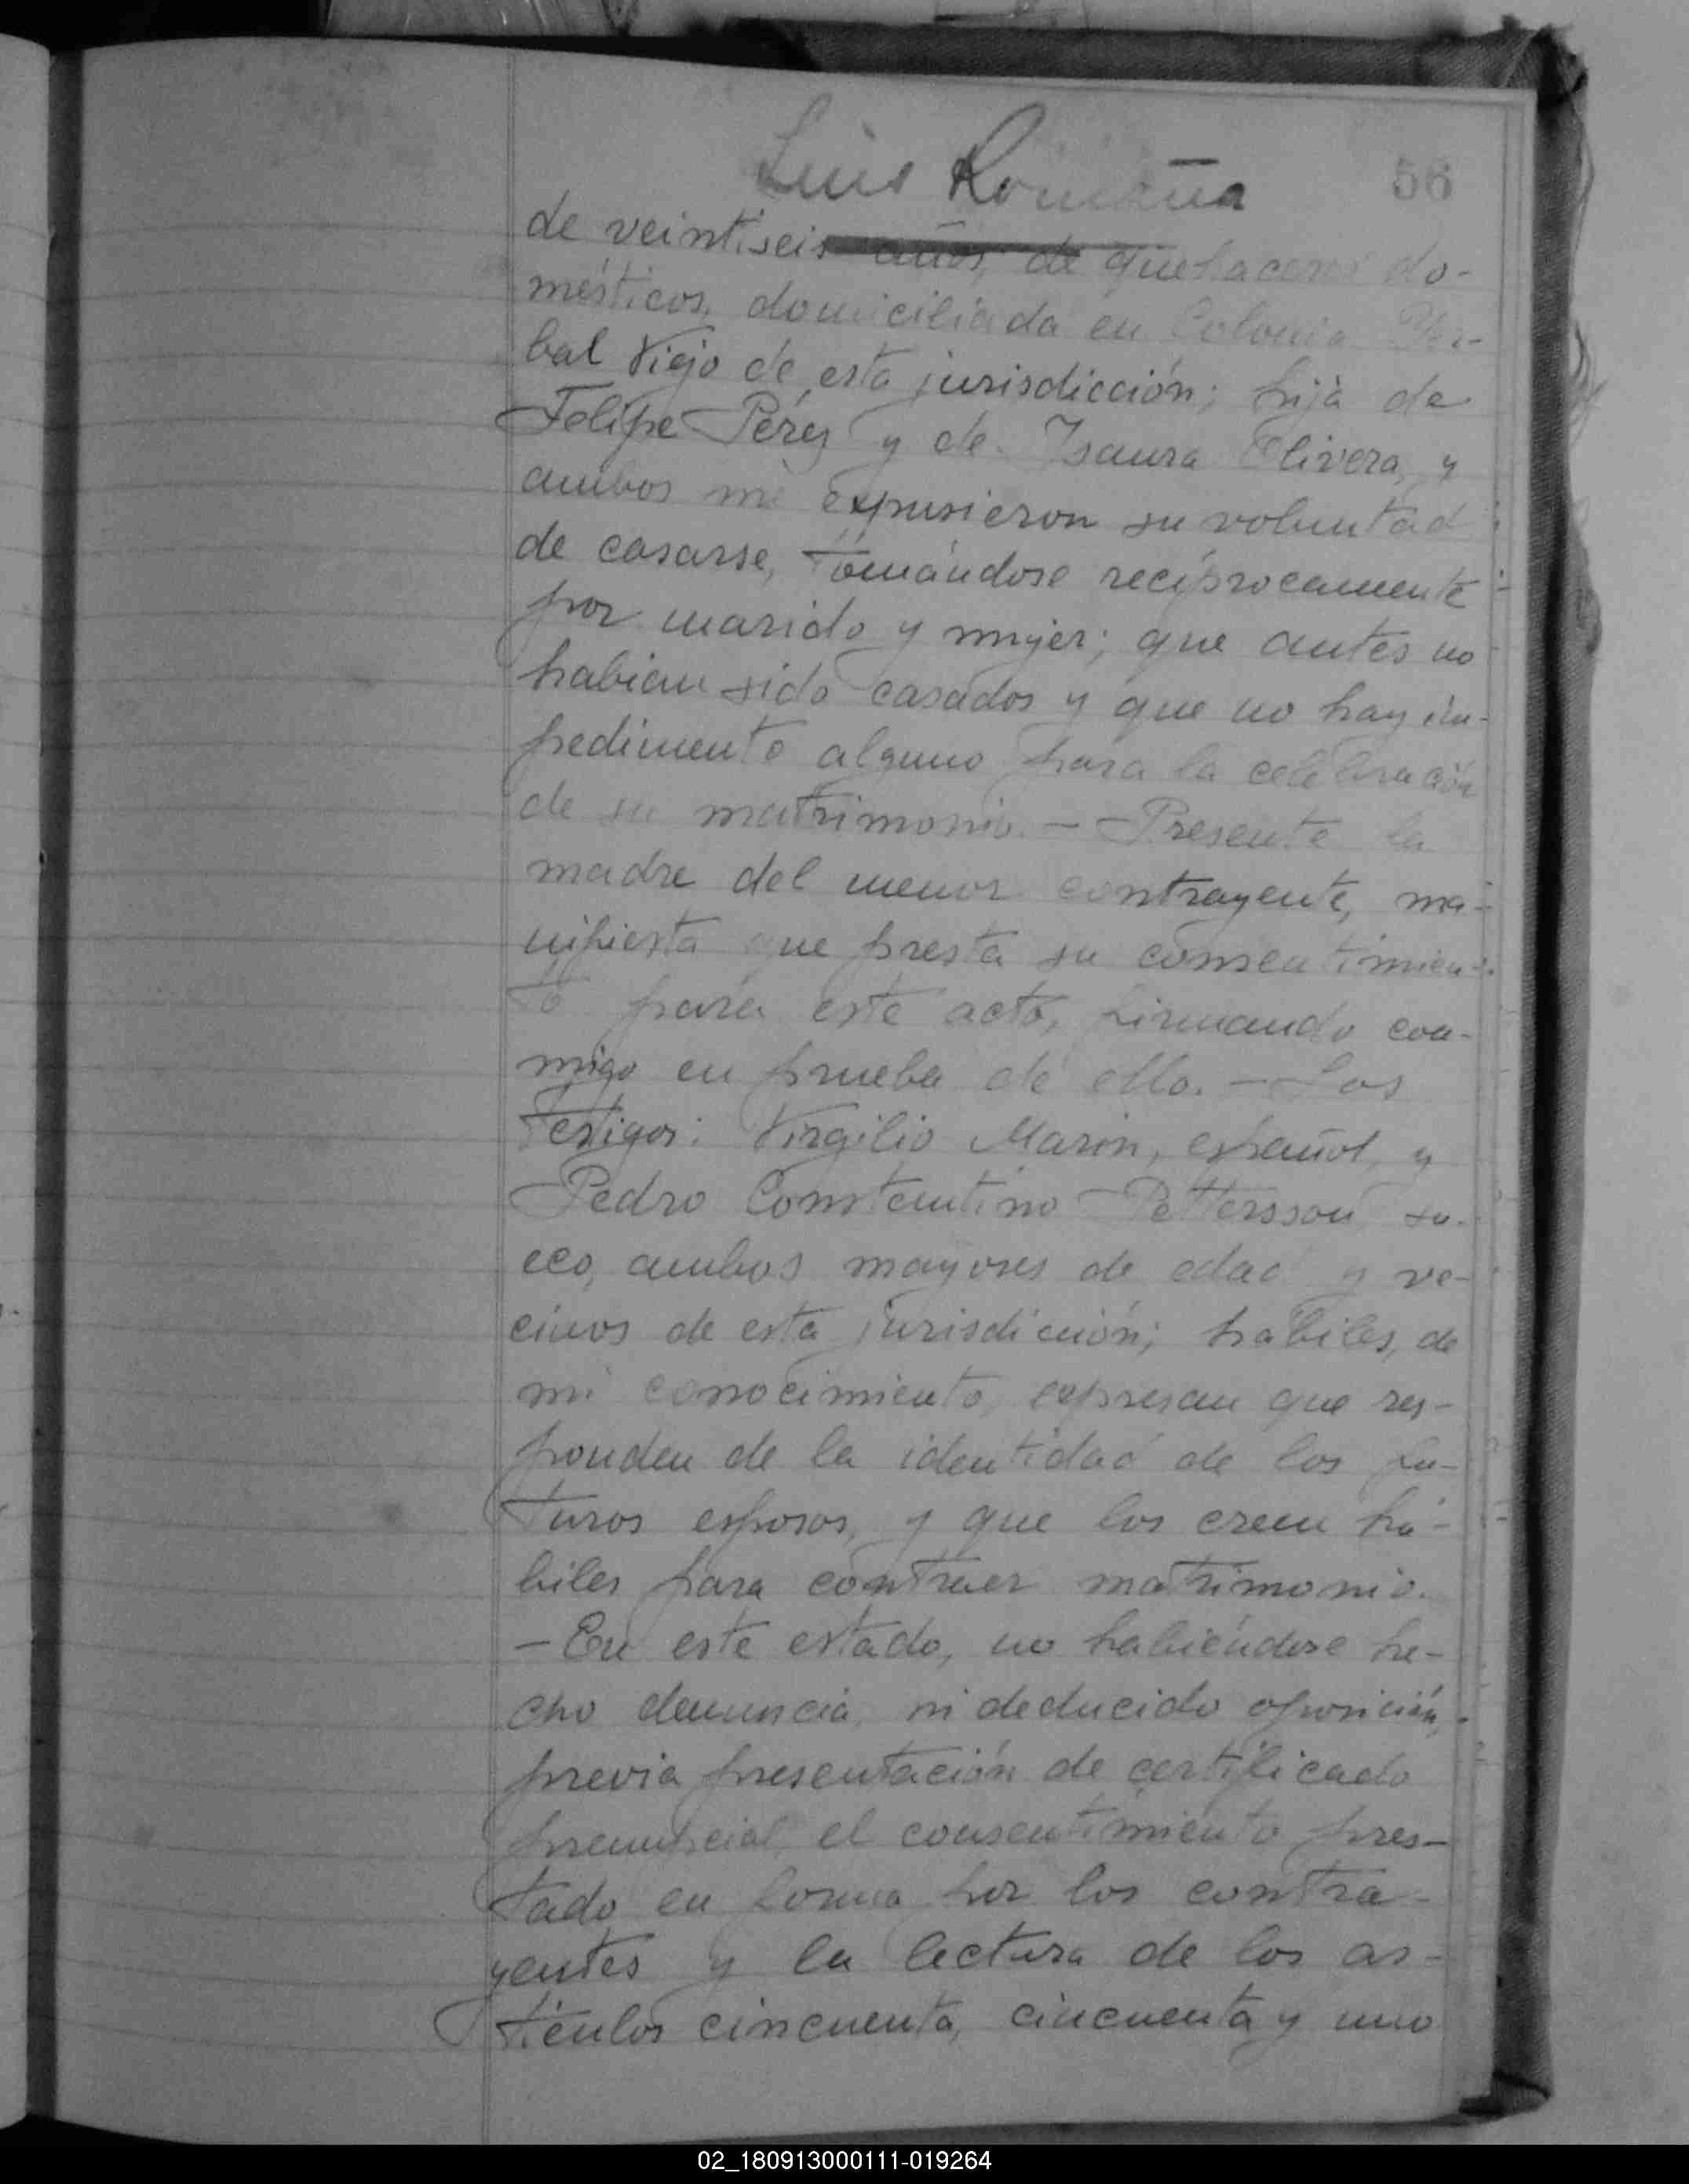 Luis Romaña
56
de veintiseis años, de quehaceres do-
mésticos, domiciliada en Colonia Yer-
bal Viejo de esta jurisdicción; hija de
Felipe Pérez y de Isaura Olivera, y
ambos me expusieron su voluntad
de casarse, tomándose recíprocamente
por marido y mujer; que antes no
habian sido casados y que no hay im-
pedimento alguno para la celebración
de su matrimonio. — Presente la
madre del menor contrayente, ma-
nifiesta que presta su consentimien-
to para este acto, firmando con-
migo en prueba de ello. — Los
testigos: Virgilio Marin, español, y
Pedro Constantino Pettersson su-
eco, ambos mayores de edad y ve-
cinos de esta jurisdicción; hábiles, de
mi conocimiento, expresan que res-
ponden de la identidad de los fu-
turos esposos, y que los creen há-
biles para contraer matrimonio.
— En este estado, no habiéndose he-
cho denuncia, ni deducido oposición,
previa presentación de certificado
prenupcial, el consentimiento pres-
tado en forma por los contra-
yentes y la lectura de los ar-
tículos cincuenta, cincuenta y uno
02_180913000111-019264